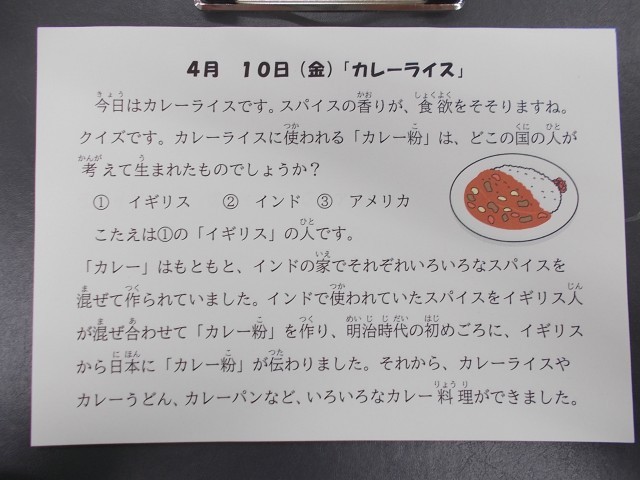 4月　10日(金)「カレーライス」
今日はカレーライスです。スパイスの香りが、食欲をそそりますね。
クイズです。カレーライスに使われる「カレー粉」は、どこの国の人が
考えて生まれたものでしょうか？
①　イギリス　　②　インド　③　アメリカ
こたえは①の「イギリス」の人です。
「カレー」はもともと、インドの家でそれぞれいろいろなスパイスを
混ぜて作られていました。インドで使われていたスパイスをイギリス人
が混ぜ合わせて「カレー粉」を作り、明治時代の初めごろに、イギリス
から日本に「カレー粉」が伝わりました。それから、カレーライスや
カレーうどん、カレーパンなど、いろいろなカレー料理ができました。